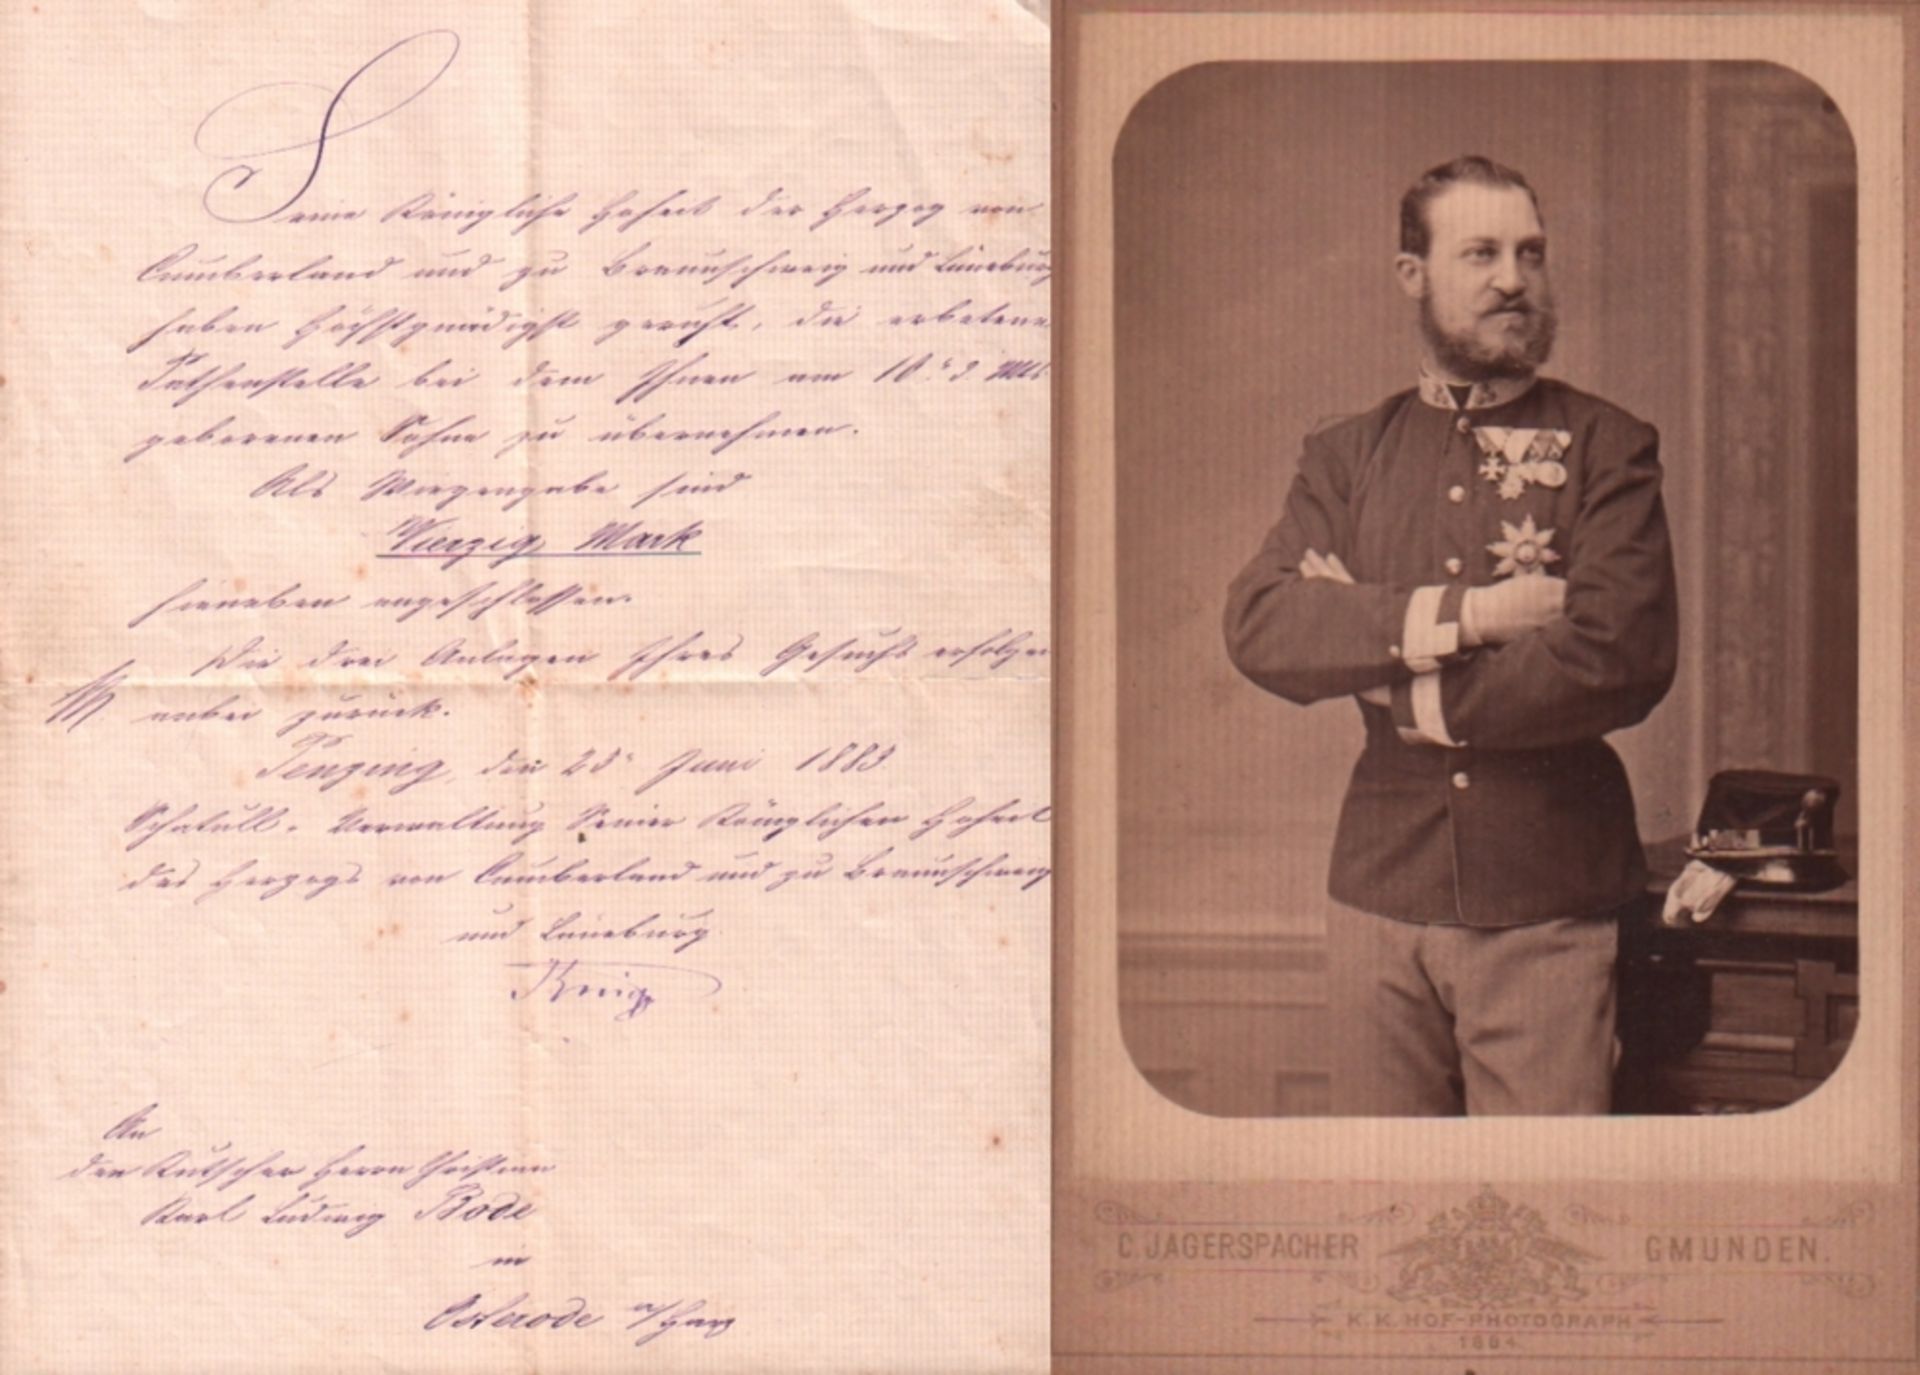 Seine Königliche Hoheit der Herzog von
Cumberland und zu Braunschweig und Lüneburg
haben Höchstgnädigst geruht, die erbetene
Pathenstelle bei dem Ihnen am 10. d. Mts
geborenen Sohne zu übernehmen.
Als Wiegengabe sind
Vierzig Mark
hieneben angeschlossen.
Die drei Anlagen Ihres Gesuchs erfolgen
anbei zurück.
Penzing, den 25. Juni 1883.
Schatull-Verwaltung Seiner Königlichen Hoheit
des Herzogs von Cumberland und zu Braunschweig
und Lüneburg.
An
den Kutscher Herrn Christian
Karl Ludwig Bode
in
Osterode a/Harz
C. JAGERSPACHER GMUNDEN.
K. K. HOF-PHOTOGRAPH
1884